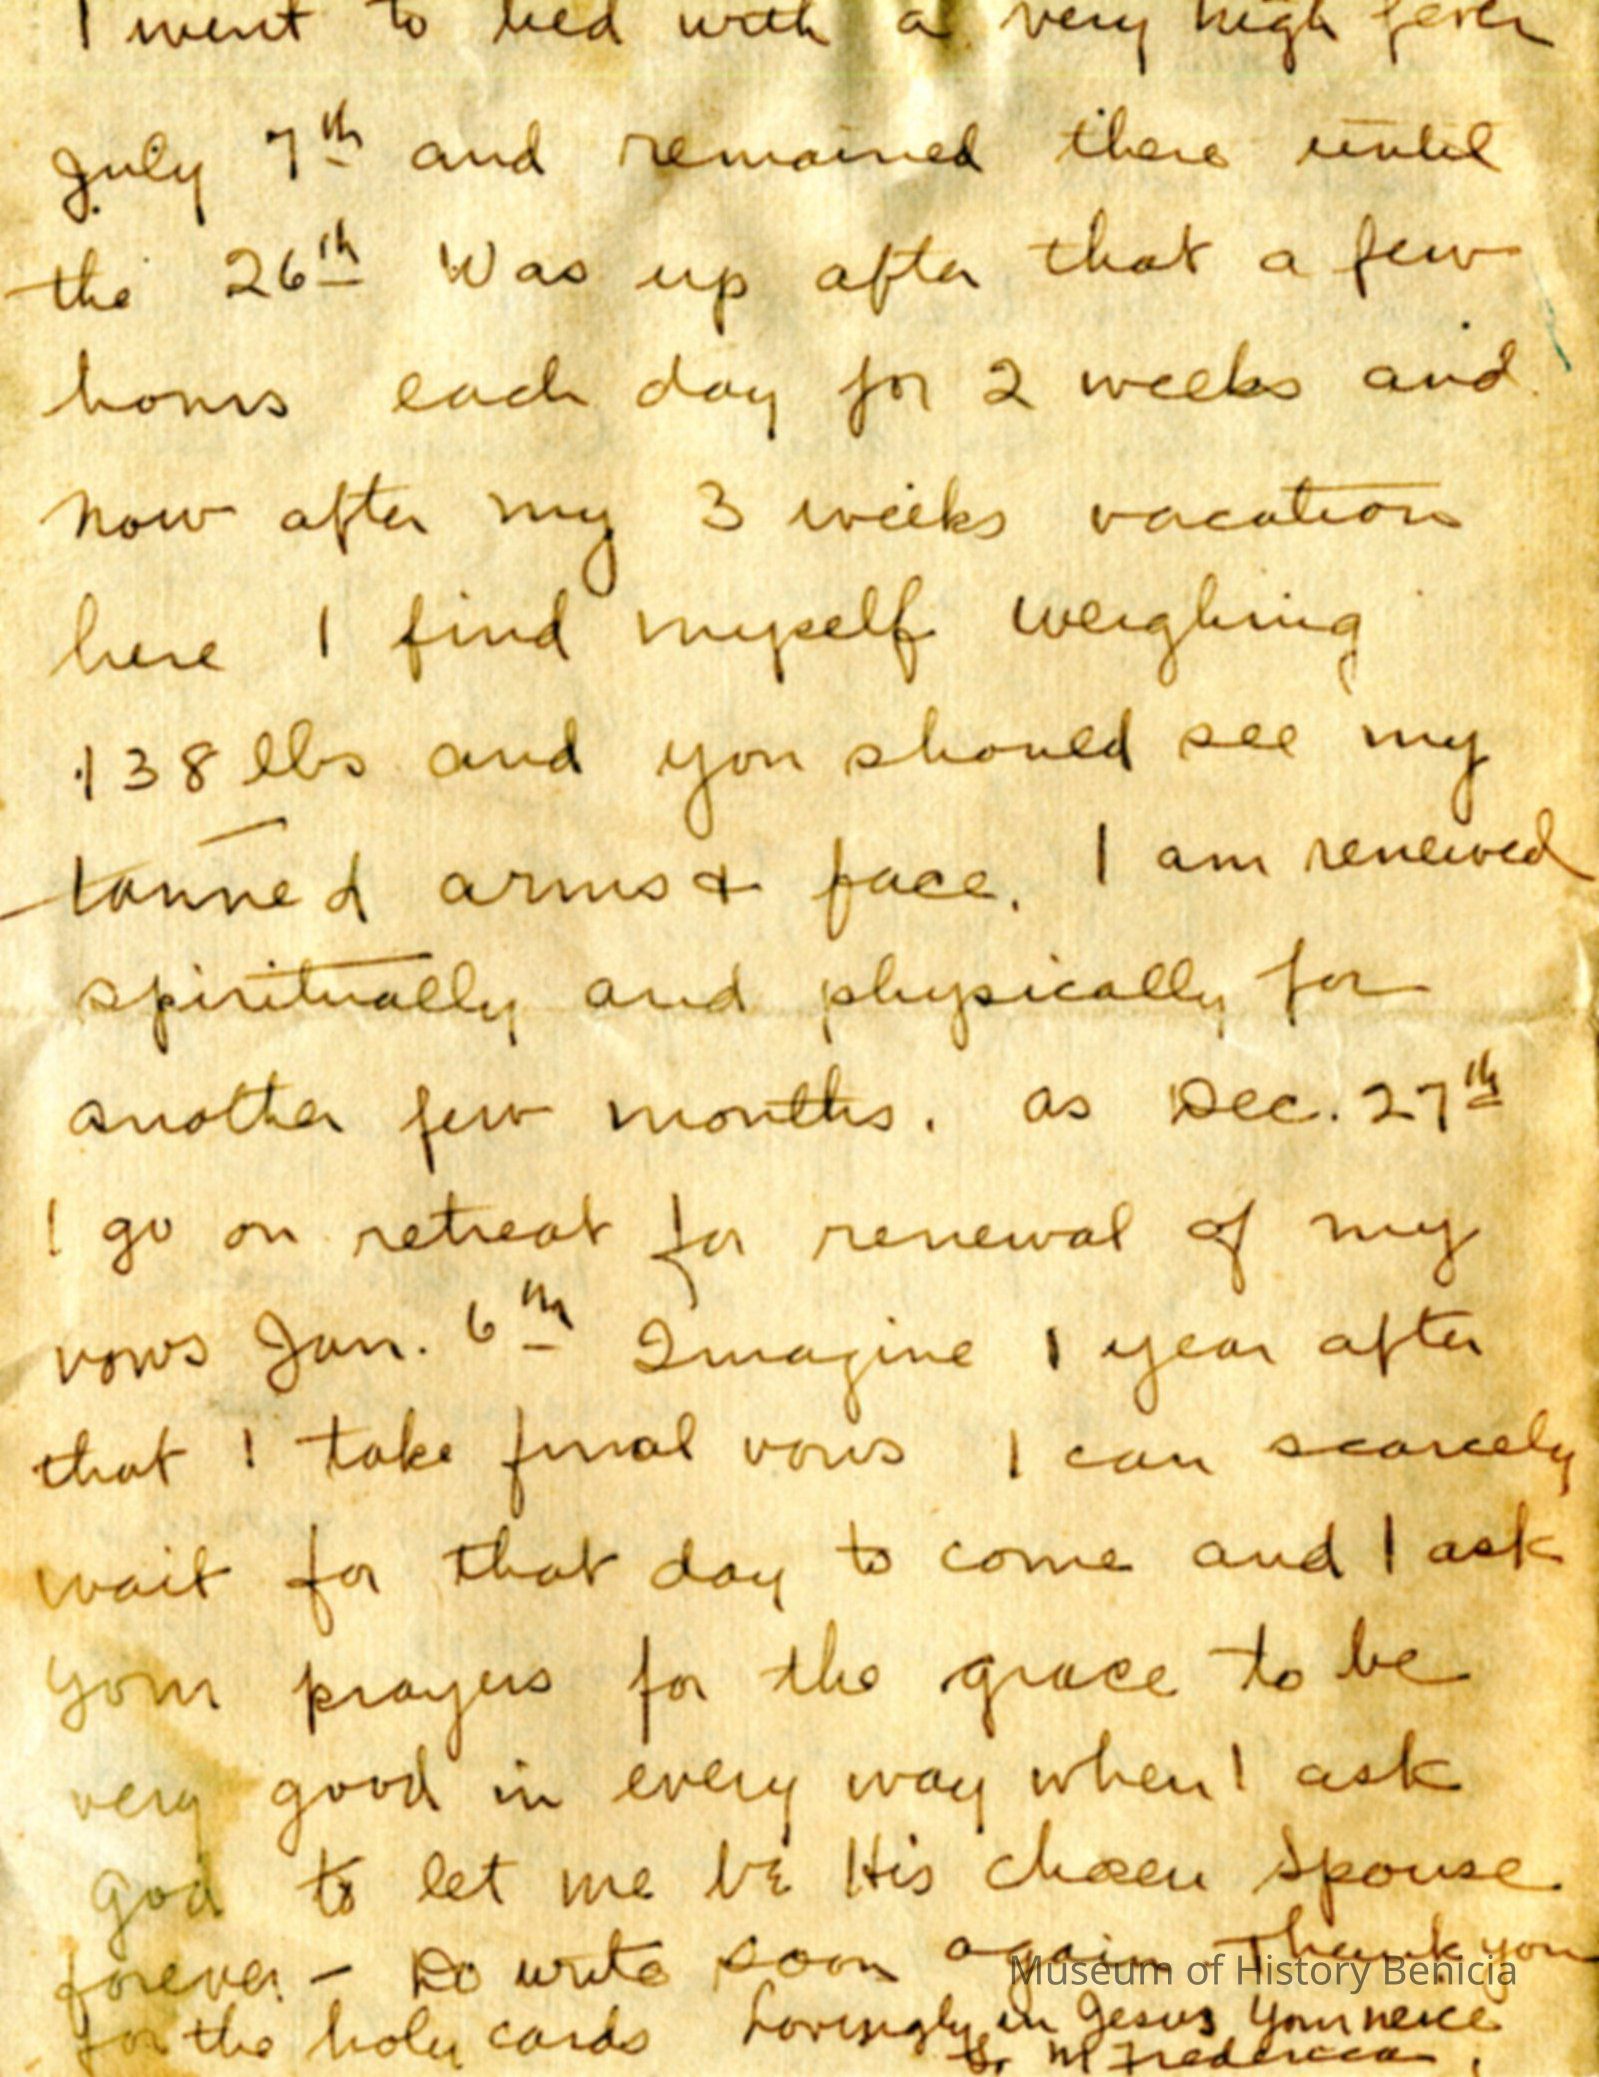 I went to bed with a very high fever
July 7th and remained there until
the 26th Was up after that a few
hours each day for 2 weeks and
now after my 3 weeks vacation
here I find myself weighing
138 lbs and you should see my
tanned arms & face. I am renewed
spiritually and physically for
another few months. as Dec. 27th
I go on retreat for renewal of my
vows Jan. 6th Imagine 1 year after
that I take final vows I can scarcely
wait for that day to come and I ask
your prayers for the grace to be
very good in every way when I ask
God to let me be His chosen Spouse
forever. – Do write soon again Thank you
for the holy cards Lovingly in Jesus Your neice
Sr M Frederica.
Museum of History Benicia